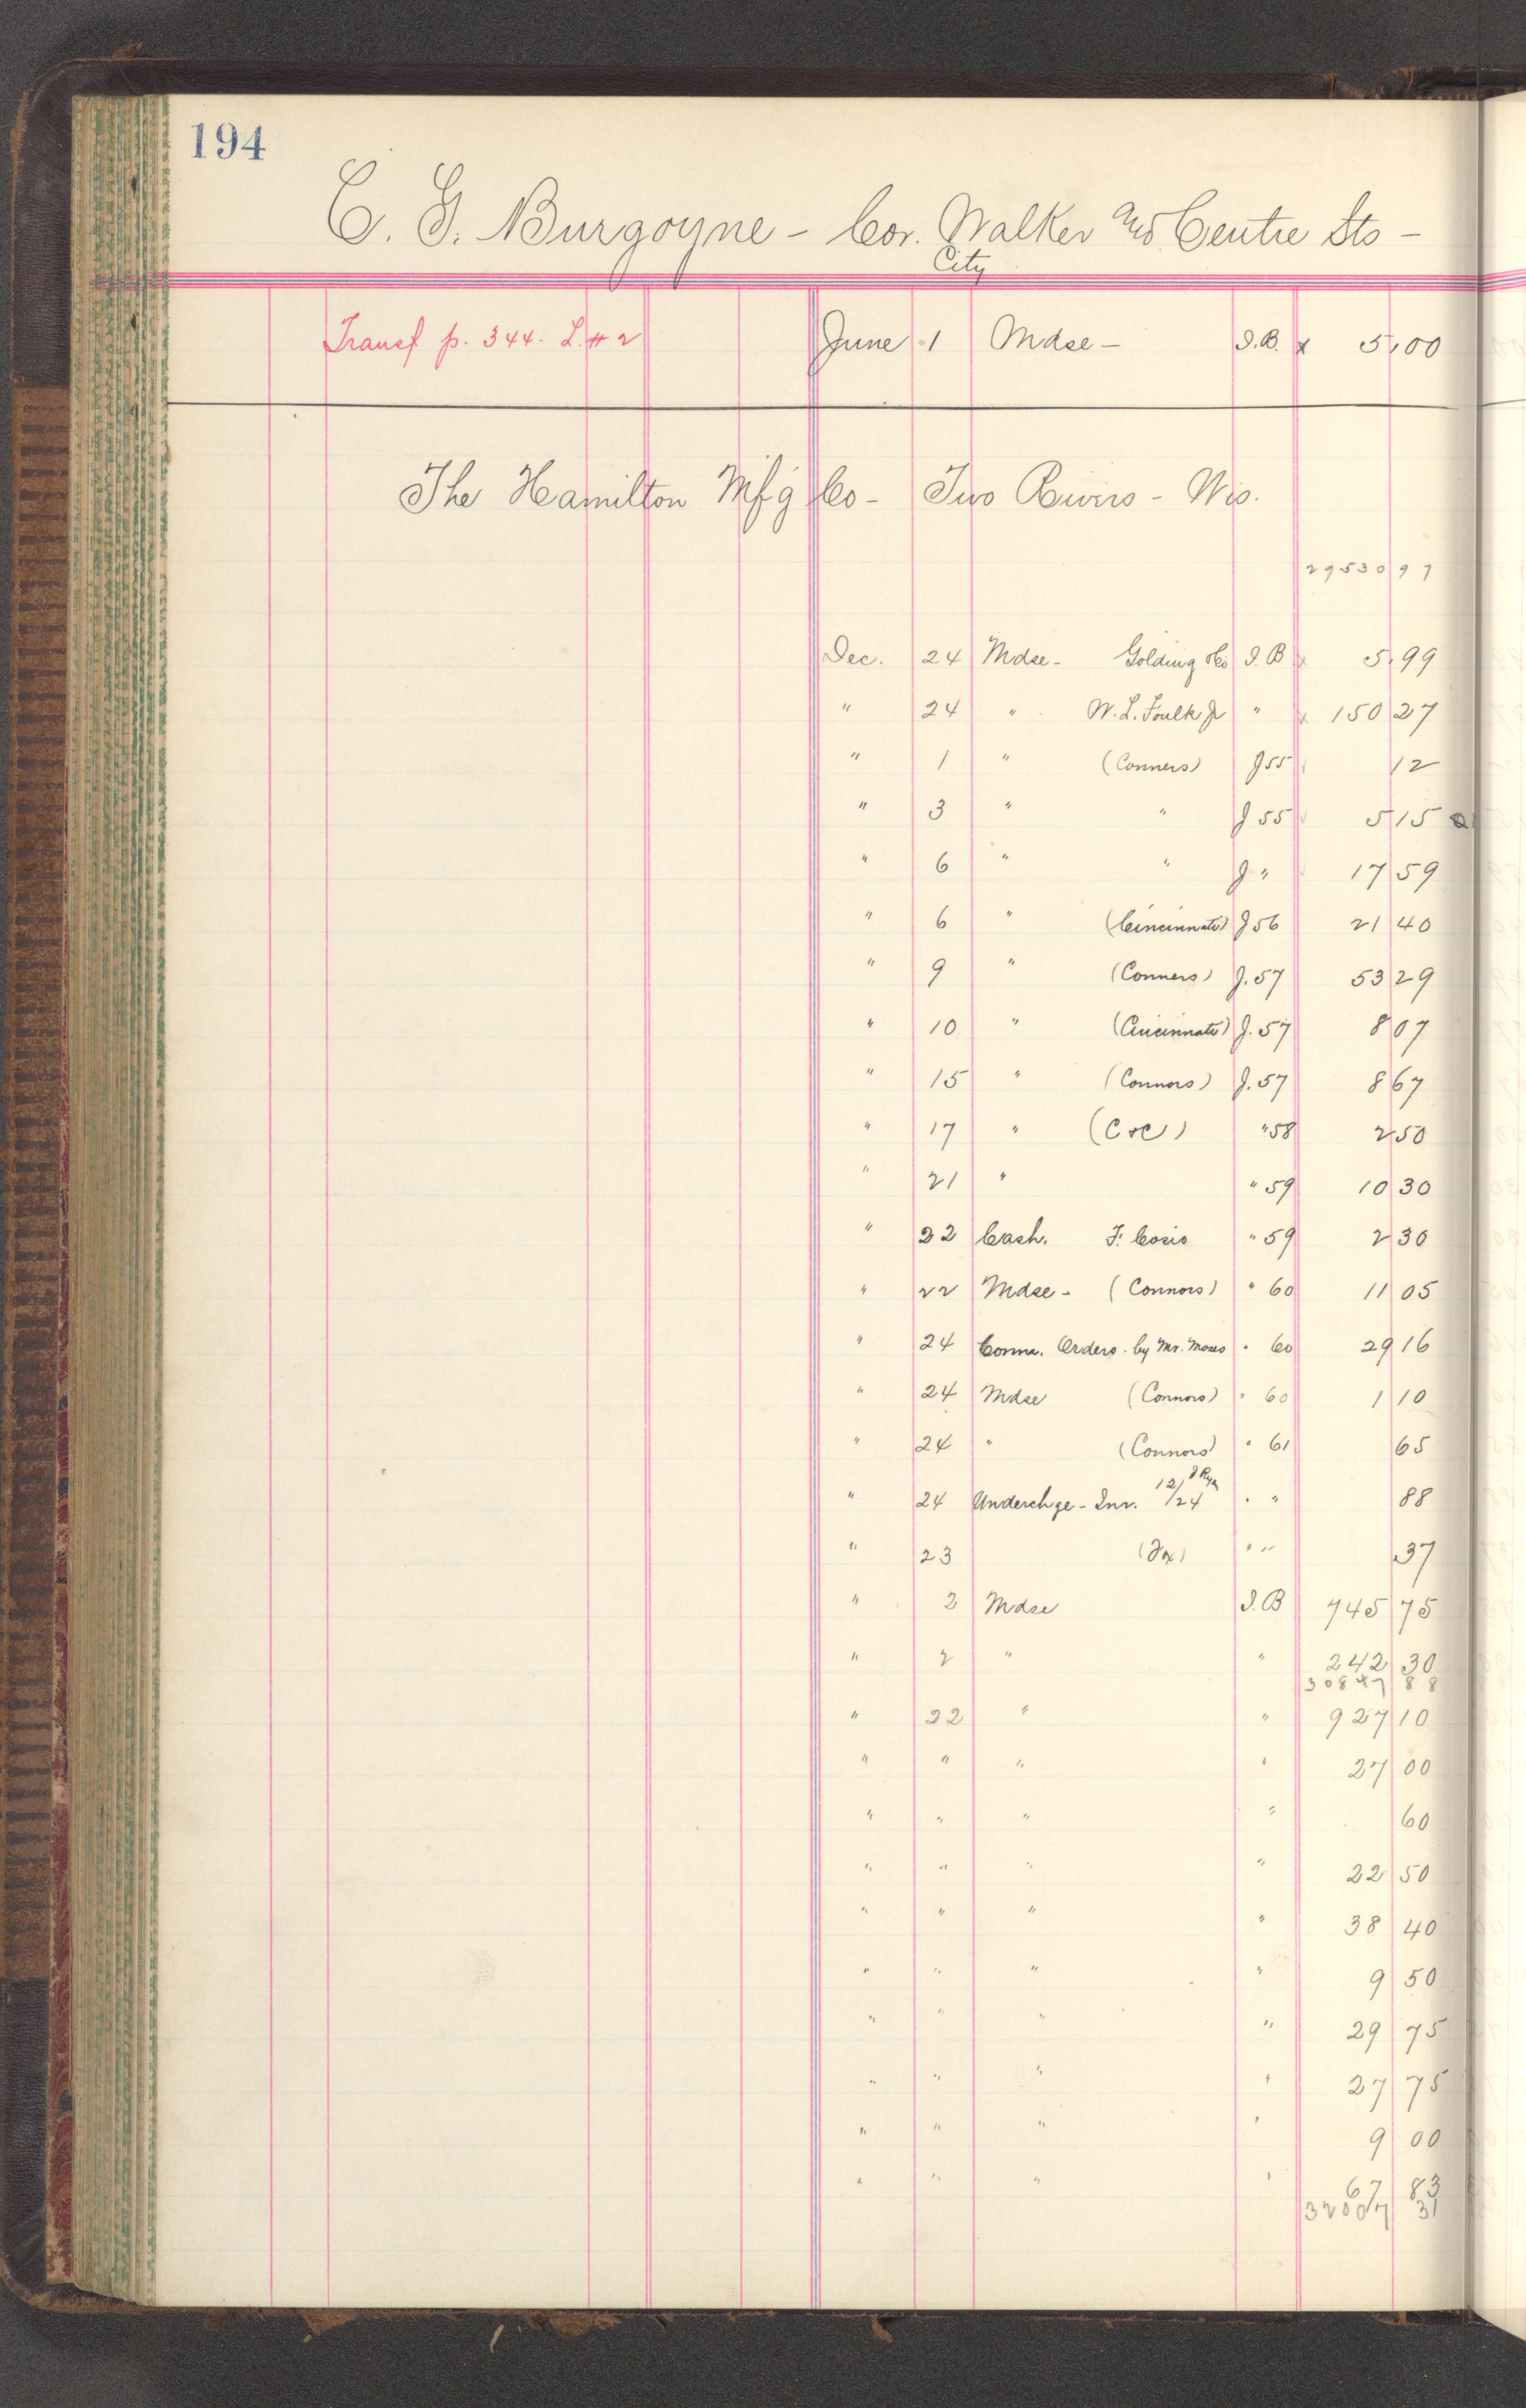 194
C. G. Burgoyne - Cor. Walker and Centre Sts -
City
Transf p. 344. L. # 2 June 1 Mdse - I.B. x 5,00
The Hamilton Mf'g Co - Two Rivers - Wis.
29530 97
Dec. 24 Mdse - Golding & Co I.B x 5,99
" 24 " W. L. Foulk Jr " x 150 27
" 1 " (Conners) J 55 12
" 3 " " J 55 5 15
" 6 " " J " 17 59
" 6 " (Cincinnati) J 56 21 40
" 9 " (Conners) J. 57 53 29
" 10 " (Cincinnati) J. 57 8 07
" 15 " (Connors) J. 57 8 67
" 17 " (C&C) " 58 2 50
" 21 " " 59 10 30
" 22 Cash. F. " 59 2 30
" 22 Mdse - (Connors) " 60 11 05
" 24 Comm. Orders. by Mr. Moses " 60 29 16
" 24 Mdse (Connors) " 60 1 10
" 24 " (Connors) " 61 65
" 24 Underchge - Inv. 12/24 " " 88
" 23 " " 37
" 2 Mdse I.B 745 75
" 2 " " 242 30
30847 88
" 22 " " 927 10
" " " " 27 00
" " " " 60
" " " " 22 50
" " " " 38 40
" " " " 9 50
" " " " 29 75
" " " " 27 75
" " " " 9 00
" " " " 67 83
32007 31